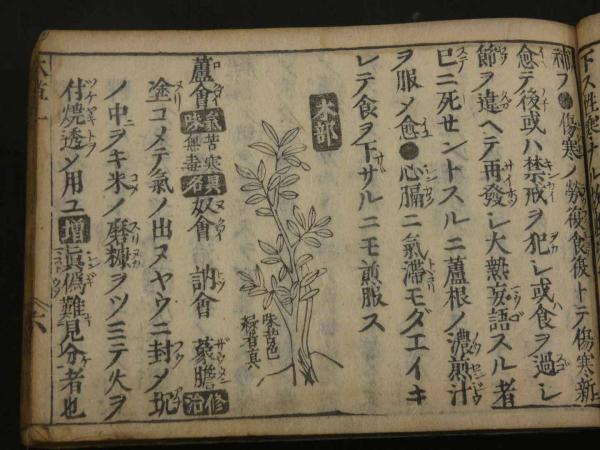 下ス性寒ナル
補フ●傷寒ノ勞復食復トテ傷寒新
愈テ後或ハ禁戒ヲ犯シ或食ヲ過シ
節ヲ違ヘテ再發シ大熱妄語スル者
巳ニ死セントスルニ蘆根ノ濃煎汁
ヲ服メ愈●心膈ニ氣滯モダエイキ
レテ食ヲ下サルニモ煎服ス
木部
味苦色
緑者真
蘆會 氣味 苦寒無毒 異名 奴會 訥會 象膽 修治
塗コメテ氣ノ出ヌヤウニ封メ坑
ノ中ヲキ米ノ磨糠ヲツミテ火ヲ
付燒透メ用ユ 増 眞僞難見分者也
六